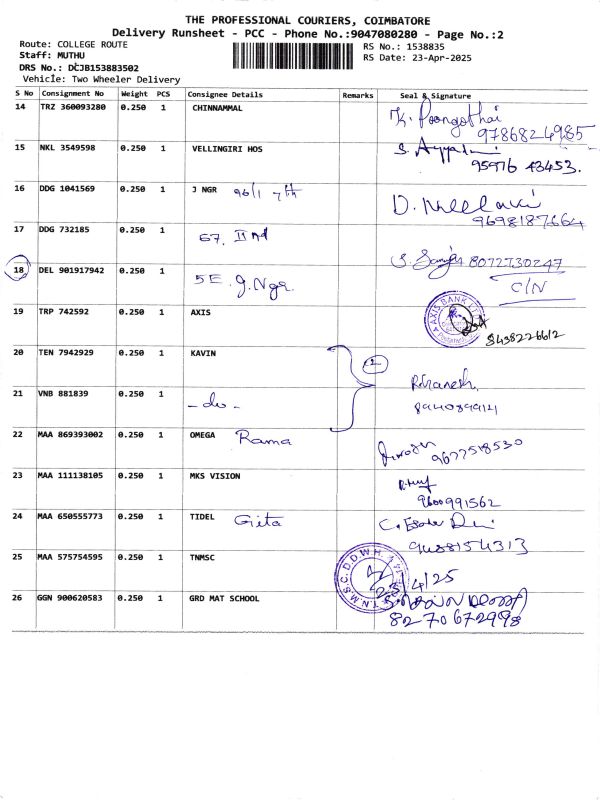 THE PROFESSIONAL COURIERS, COIMBATORE
Delivery Runsheet - PCC - Phone No.:9047080280 - Page No.:2
Route: COLLEGE ROUTE
RS No.: 1538835
Staff: MUTHU
RS Date: 23-Apr-2025
DRS No.: DCJB153883502
Vehicle: Two Wheeler Delivery
S No Consignment No Weight PCS Consignee Details Remarks Seal & Signature
14 TRZ 360093280 0.250 1 CHINNAMMAL K. Poongothai
9786824985
15 NKL 3549598 0.250 1 VELLINGIRI HOS S.
95976 43453.
16 DDG 1041569 0.250 1 J NGR 96/1 7th D.
9698187664
17 DDG 732185 0.250 1 67. IInd
18 DEL 901917942 0.250 1 5E. J. Ngr. S. 8072730247
C/N
19 TRP 742592 0.250 1 AXIS AXIS BANK LT
8438226612
20 TEN 7942929 0.250 1 KAVIN 2
21 VNB 881839 0.250 1 - do -
8940899121
22 MAA 869393002 0.250 1 OMEGA Rama
9677518530
23 MAA 111138105 0.250 1 MKS VISION
9600991562
24 MAA 650555773 0.250 1 TIDEL Gita C.
9488154313
25 MAA 575754595 0.250 1 TNMSC T.N.M.S.C.D.D.W.H. 25/4/25
26 GGN 900620583 0.250 1 GRD MAT SCHOOL
8270672998